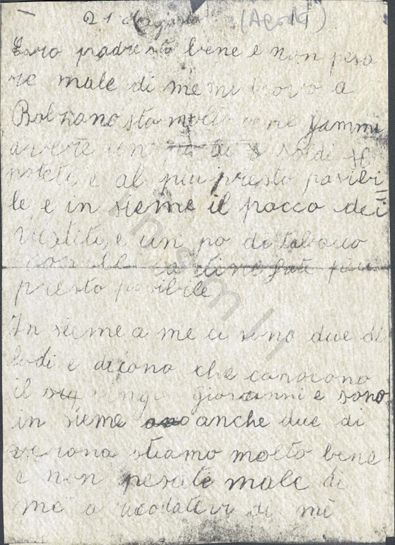 21 (Agost)
padre sto bene e non pesa
re male di me mi trovo a
Bolzano sto molto bene fammi
avere un di soldi se
potete e al piu presto posibi
le e in sieme il pacco dei
vestiti e un po di tabacco
presto posibile
In sieme a me ci sono due di
lodi e dicono che conosono
il giovanni e sono
in sieme anche due di
verona stiamo molto bene
e non pesate male di
me a ricodatevi di me